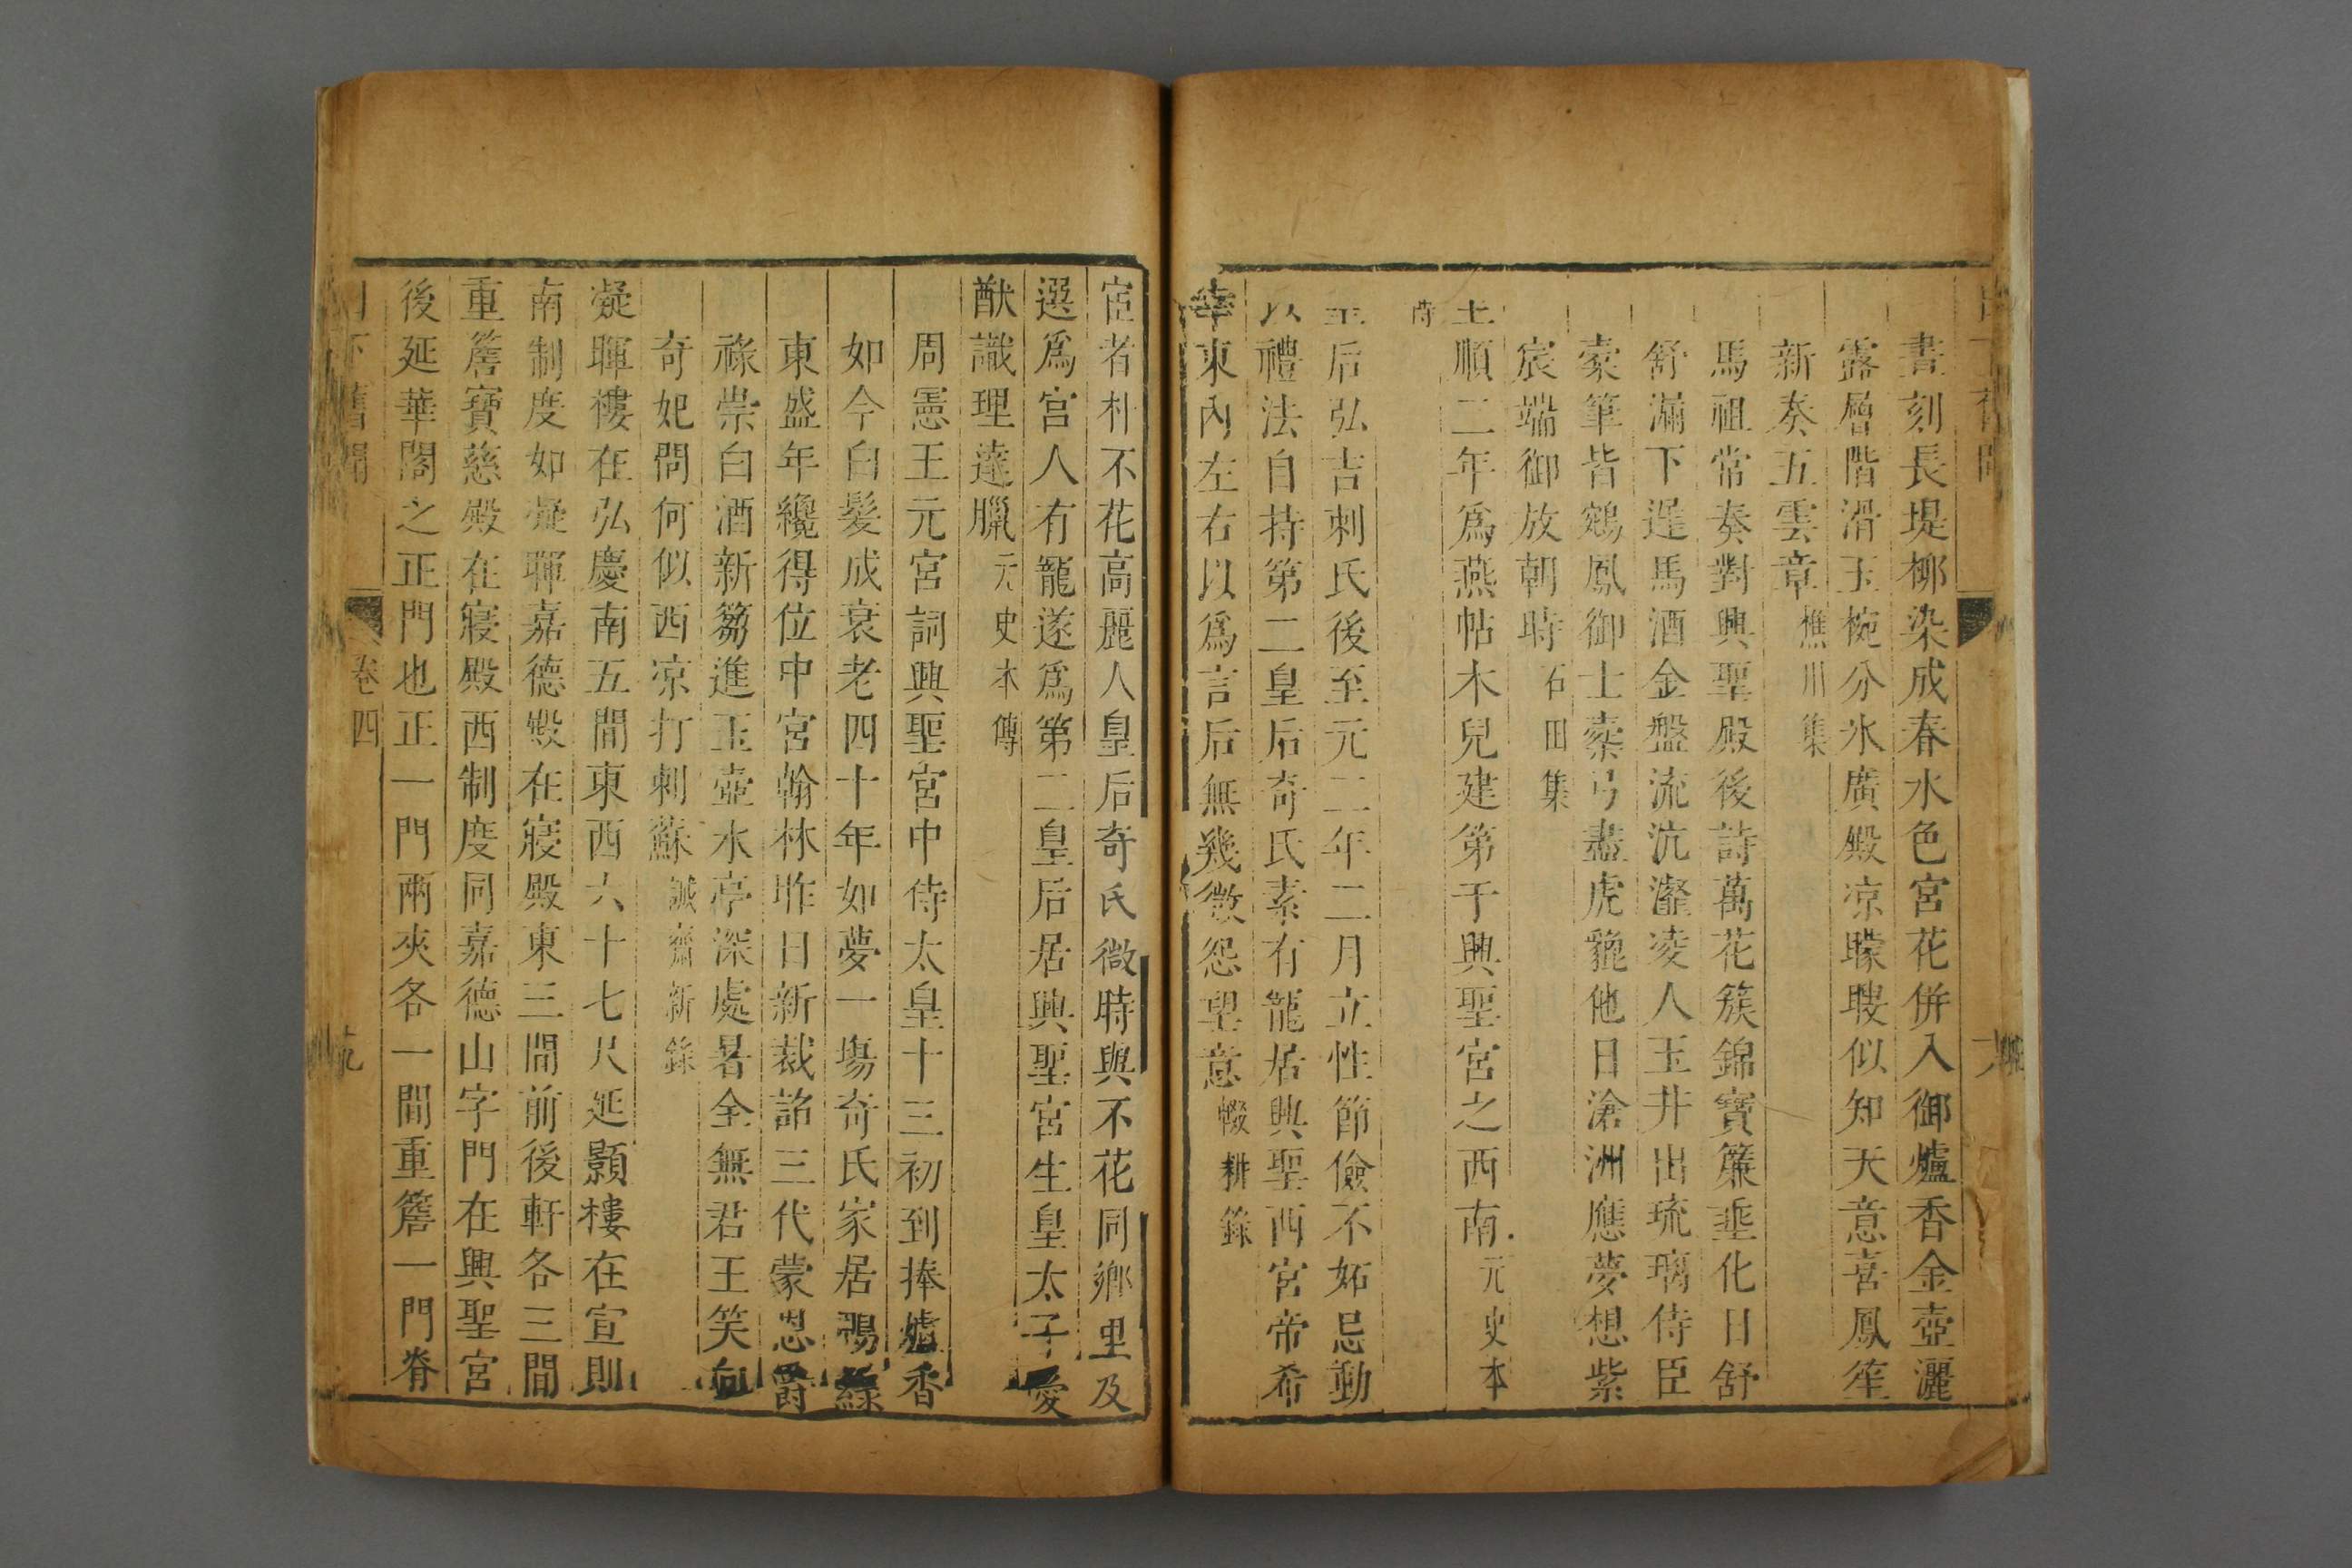 晝刻長堤柳染成春水色宮花併入御爐香金壺灑
露層階滑玉椀分氷廣殿凉曚瞍似知天意喜鳳笙
新奏五雲章樵川集
馬祖常奏對興聖殿後詩萬花簇錦寶簾垂化日舒
舒漏下遲馬酒金盤流沆瀣凌人玉井出琉璃侍臣
橐筆皆鵷鳳御士櫜弓盡虎貔他日滄洲應夢想紫
宸端御放朝時石田集
至順二年爲燕帖木兒建第于興聖宮之西南元史本
后弘吉剌氏後至元二年二月立性節儉不妬忌動
以禮法自持第二皇后奇氏素有寵居興聖西宮帝希
幸東內左右以爲言后無幾微怨望意輟耕錄
宦者朴不花高麗人皇后奇氏微時與不花同鄉里及
選爲宮人有寵遂爲第二皇后居興聖宮生皇太子愛
猷識理達臘元史本傳
周憲王元宮詞興聖宮中侍太皇十三初到捧爐香
如今白髮成衰老四十年如夢一塲奇氏家居鴨綠
東盛年纔得位中宮翰林昨日新裁詔三代蒙恩爵
祿崇白酒新篘進玉壺水亭深處暑全無君王笑向
奇妃問何似西凉打剌蘇誠齋新錄
凝暉樓在弘慶南五間東西六十七尺延顥樓在宣則
南制度如凝暉嘉德殿在寢殿東三間前後軒各三間
重簷寶慈殿在寢殿西制度同嘉德山字門在興聖宮
後延華閣之正門也正一門兩夾各一間重簷一門脊
下舊聞 卷四